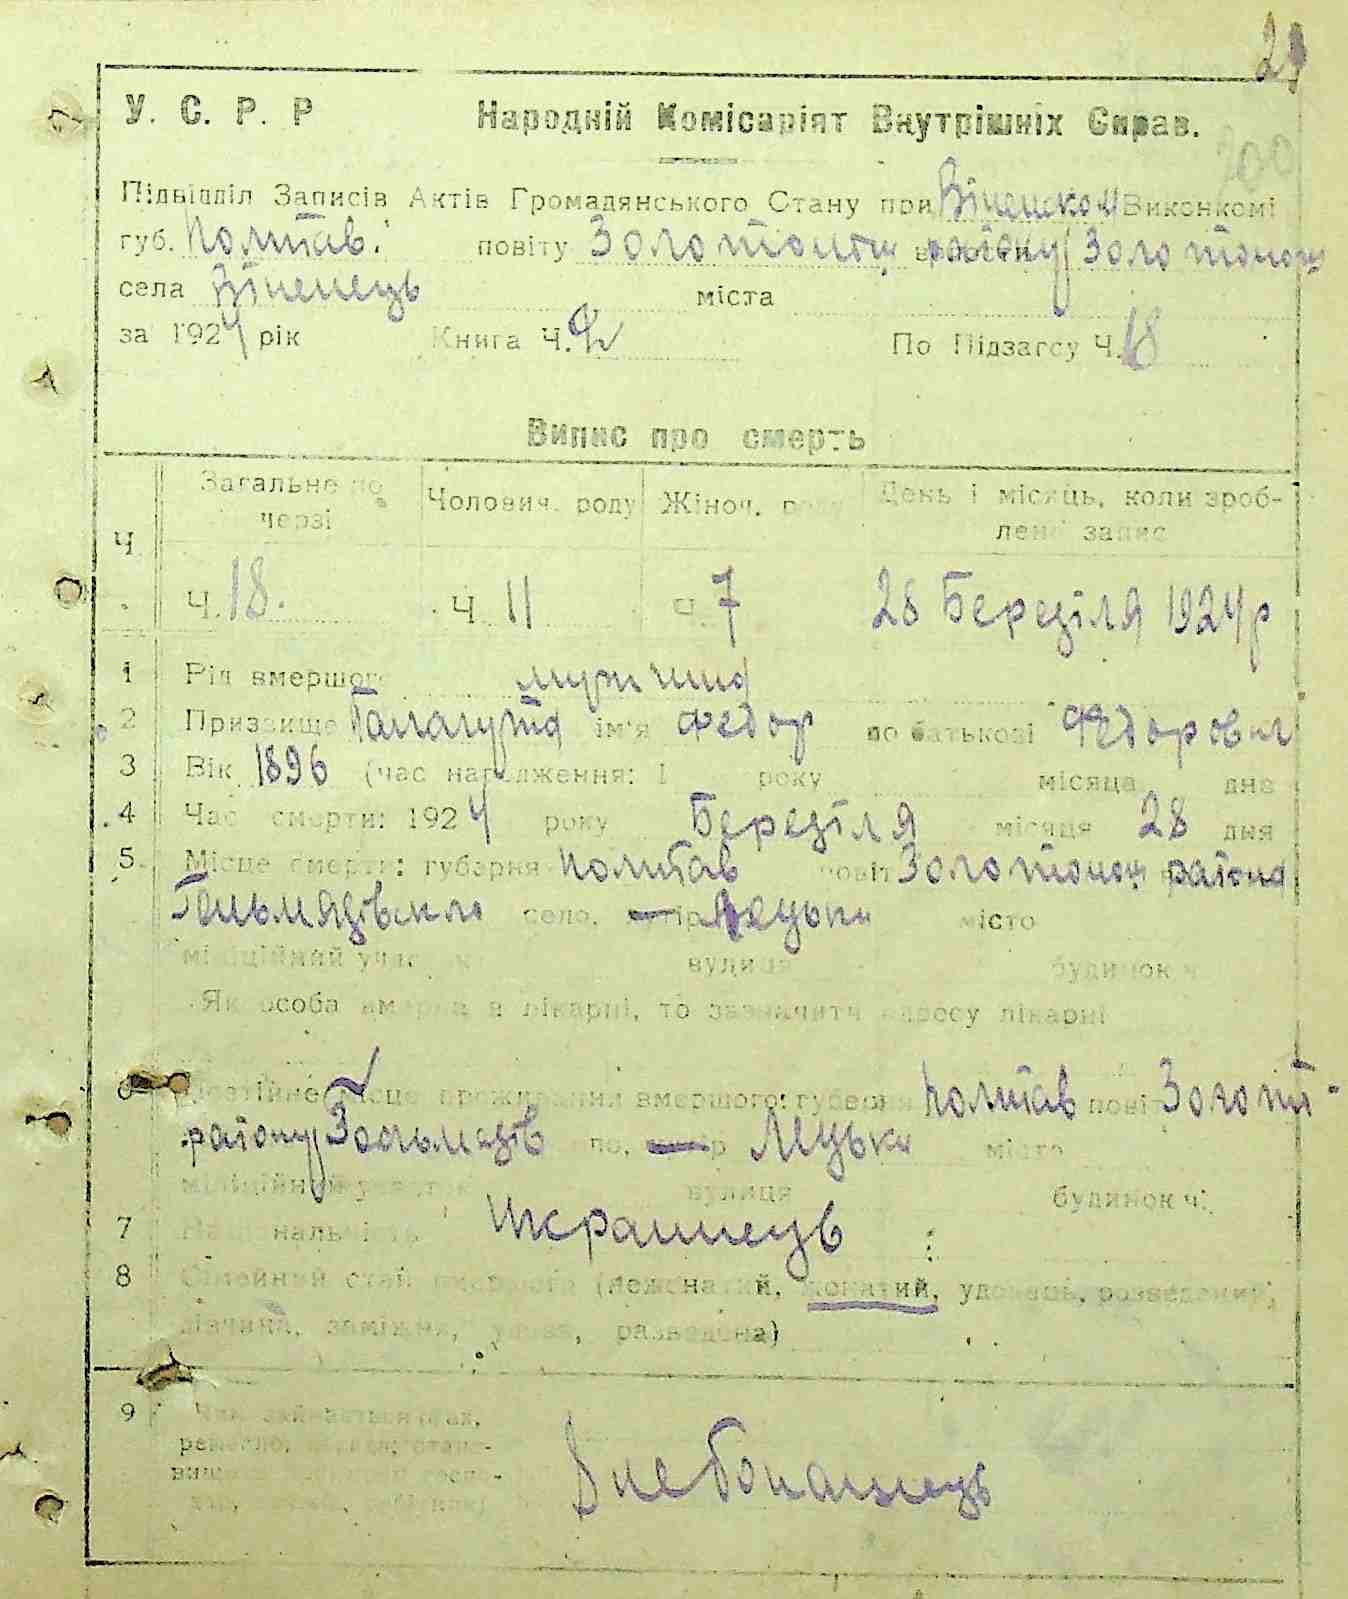 29
У. С. Р. Р Народній Комісаріят Внутрішніх Справ.
200
Підвідділ Записів Актів Громадянського Стану при Виконкомі
губ. Полтав. повіту Золотонош району Золотонош
села міста
за 1924 рік Книга Ч. По Підзагсу Ч. 18
Випис про смерть
Ч Загальне по черзі Чолович. роду Жіноч. роду День і місяць, коли зроб-
лено запис
Ч. 18. Ч. 11 Ч. 7 28 Березіля 1924 р
1 Рід вмершого мужчина
2 Призвище ім'я Федор по батькові Федорович
3 Вік 1896 (час народження: 1 року місяца дня
4 Час смерти: 1924 року Березіля місяця 28 дня
5. Місце смерти: губерня Полтав повіт Золотонош района
село, місто
міліційний вулиця будинок ч
Як особа вмерла в лікарні, то зазначити адресу лікарні
6 Постійне місце проживання вмершого: губерня Полтав повіт Золот-
району Мецьки місто
вулиця будинок ч:
7 Національність Украинець
8 Сімейний стан вмершого (нежонатий, жонатий, удовець, розведений,
дівчина, заміжня, удова, разведена)
9 Чим займається (фах,
ремесло,
Хлебопашець